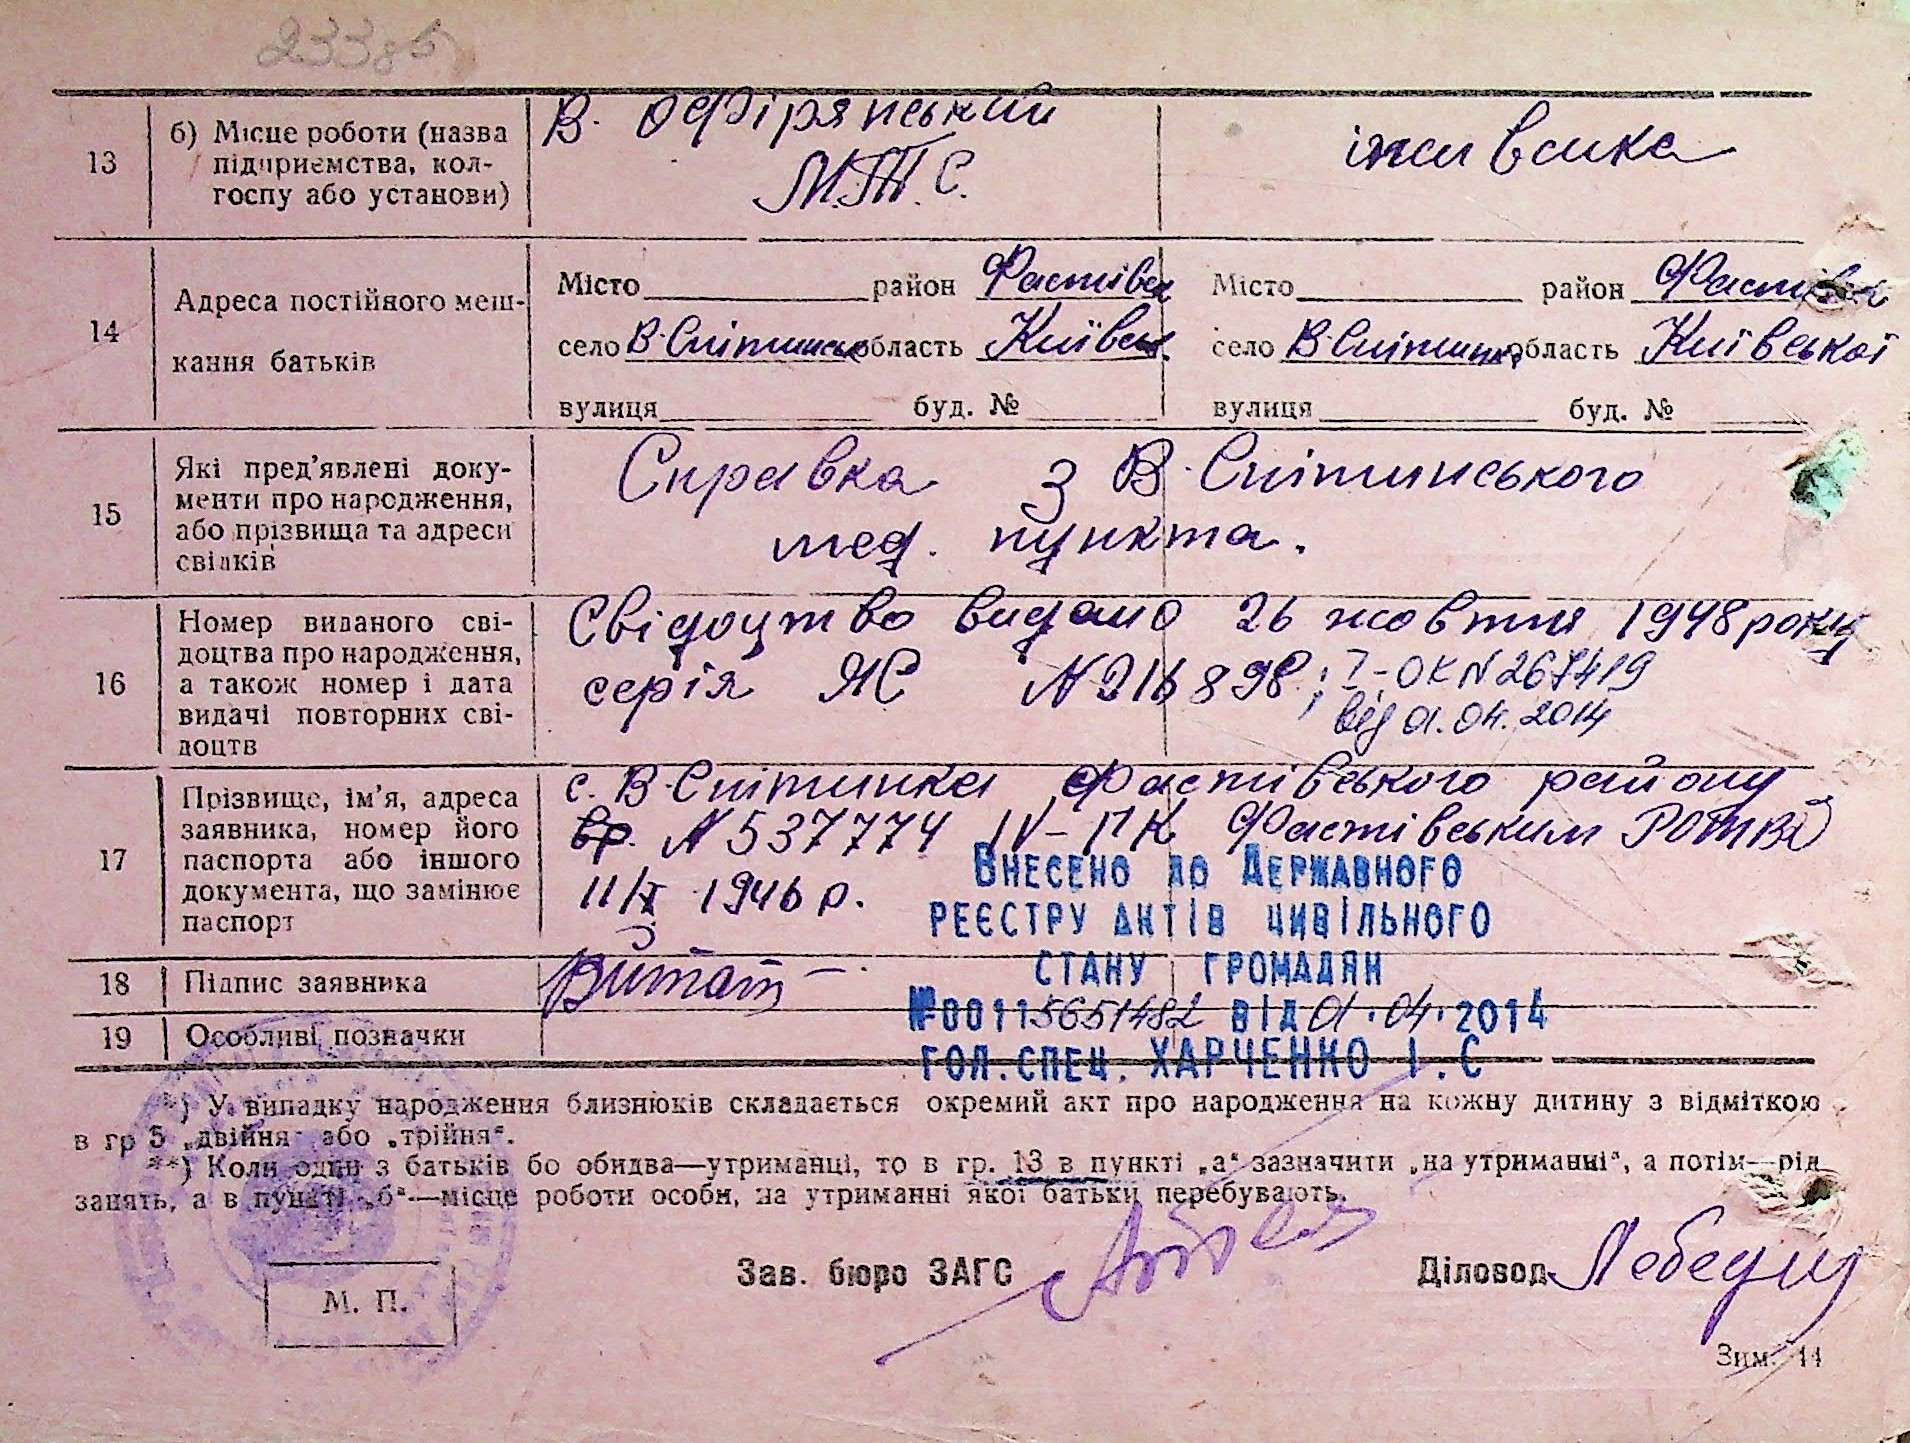 23385
13
б) Місце роботи (назва
підприємства, кол-
госпу або установи)
В. Офірянський
М.Т.С.
14
Адреса постійного меш-
кання батьків
Місто район Фастівськ
село В-Снітинськ область Київськ.
вулиця буд. №
Місто район Фастівськ
село В-Снітинка область Київської
вулиця буд. №
15
Які пред'явлені доку-
менти про народження,
або прізвища та адреси
свідків
Справка з В-Снітинського
мед. пункта.
16
Номер виданого сві-
доцтва про народження,
а також номер і дата
видачі повторних сві-
доцтв
Свідоцтво видано 26 жовтня 1948 року
серія ЯС N 216898; I-ОК N 267419
від 01.04.2014
17
Прізвище, ім'я, адреса
заявника, номер його
паспорта або іншого
документа, що замінює
паспорт
с. В-Снітинка Фастівського району
N 537774 IV-ПК Фастівським
1946 р.
ВНЕСЕНО ДО ДЕРЖАВНОГО
РЕЄСТРУ АКТІВ ЦИВІЛЬНОГО
СТАНУ ГРОМАДЯН
№00115651482 ВІД 01.04.2014
ГОЛ.СПЕЦ. ХАРЧЕНКО І.С
18
Підпис заявника
19
Особливі позначки
*) У випадку народження близнюків складається окремий акт про народження на кожну дитину з відміткою
в гр 5 „двійня“ або „трійня“.
**) Коли один з батьків бо обидва—утриманці, то в гр. 13 в пункті „а“ зазначити „на утриманні“, а потім—рід
занять, а в пункті „б“—місце роботи особи, на утриманні якої батьки перебувають.
М. П.
Зав. бюро ЗАГС
Діловод
Зим. 44